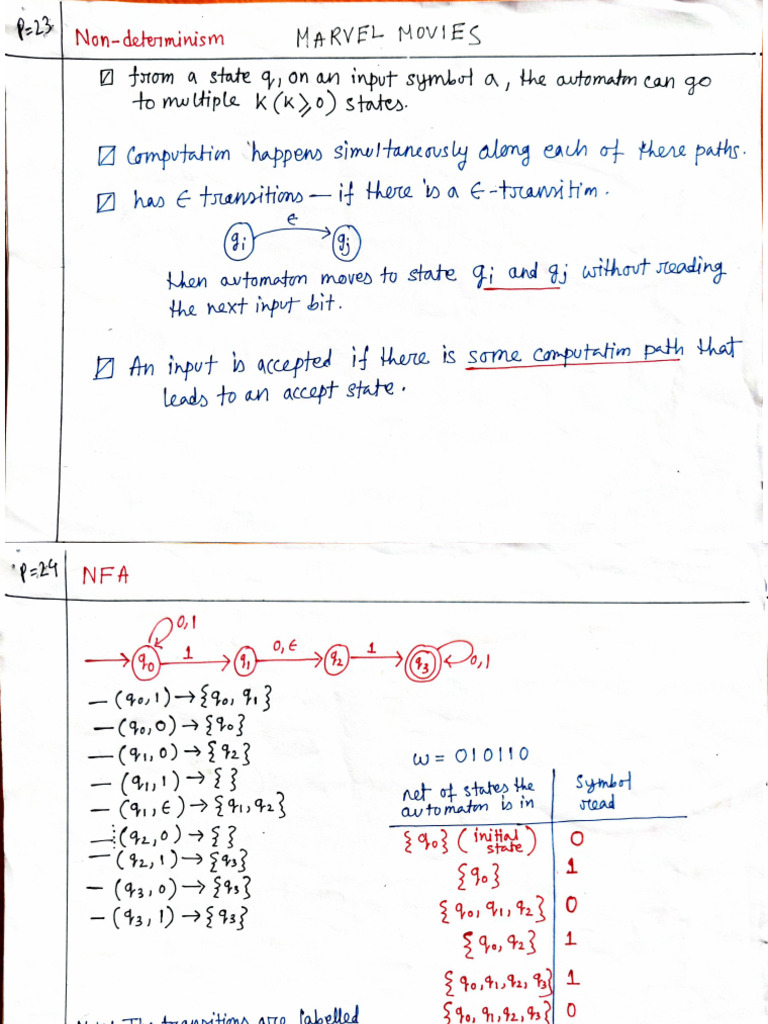 P=23
Non-determinism MARVEL MOVIES
from a state q, on an input symbol a, the automaton can go
to multiple K (K⩾0) states.
Computation happens simultaneously along each of these paths.
has ∈ transitions — if there is a ∈-transition.
∈
qi qj
then automaton moves to state qi and qj without reading
the next input bit.
An input is accepted if there is some computation path that
leads to an accept state.
P=24
NFA
0,1
q0 1 q1 0,∈ q2 1 q3 0,1
— (q0,1) → {q0, q1}
— (q0,0) → {q0}
— (q1,0) → {q2}
— (q1,1) → { }
— (q1,∈) → {q1,q2}
— (q2,0) → { }
— (q2,1) → {q3}
— (q3,0) → {q3}
— (q3,1) → {q3}
w = 010110
net of states the
automaton is in
Symbol
read
{q0} (initial state) 0
{q0} 1
{q0, q1, q2} 0
{q0, q2} 1
{q0,q1,q2,q3} 1
{q0,q1,q2,q3} 0
The transitions are labelled